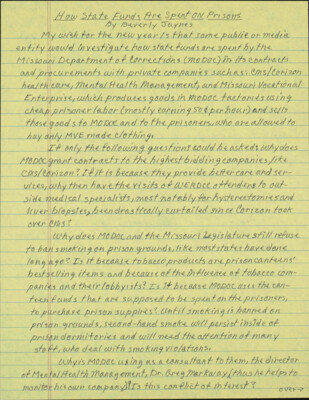 How State Funds Are Spent ON Prisons
By Beverly Jaynes
My wish for the new year is that some public or media
entity would investigate how state funds are spent by the
Missouri Department of Corrections (MODOC) in its contracts
and procurements with private companies such as: CMS/Corizon
health care, Mental Health Management, and Missouri Vocational
Enterprise, which produces goods in MODOC factories using
cheap prisoner labor (mostly earning 55¢ per hour) and sells
those goods to MODOC and to the prisoners, who are allowed to
buy only MVE made clothing.
If only the following questions could be asked: Why does
MODOC grant contracts to the highest bidding companies, like
CMS/Corizon? If it is because they provide better care and ser-
vices, why then have the visits of WERDCC offenders to out-
side medical specialists, most notably for hysterectomies and
liver biopsies, been drastically curtailed since Corizon took
over CMS?
Why does MODOC and the Missouri Legislature still refuse
to ban smoking on prison grounds, like most states have done
long ago? Is it because tobacco products are prison canteens'
bestselling items and because of the influence of tobacco com-
panies and their lobbyists? Is it because MODOC uses the can-
teen funds that are supposed to be spent on the prisoners,
to purchase prison supplies? Until smoking is banned on
prison grounds, second-hand smoke will persist inside of
prison dormitories and will need the attention of many
staff, who deal with smoking violations.
Why is MODOC using as a consultant to them, the director
of Mental Health Management, Dr. Greg Markway (thus he helps to
monitor his own company)? Is this conflict of interest?